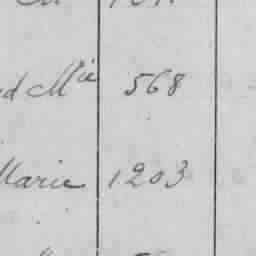 d Mie 568
Marie 1203